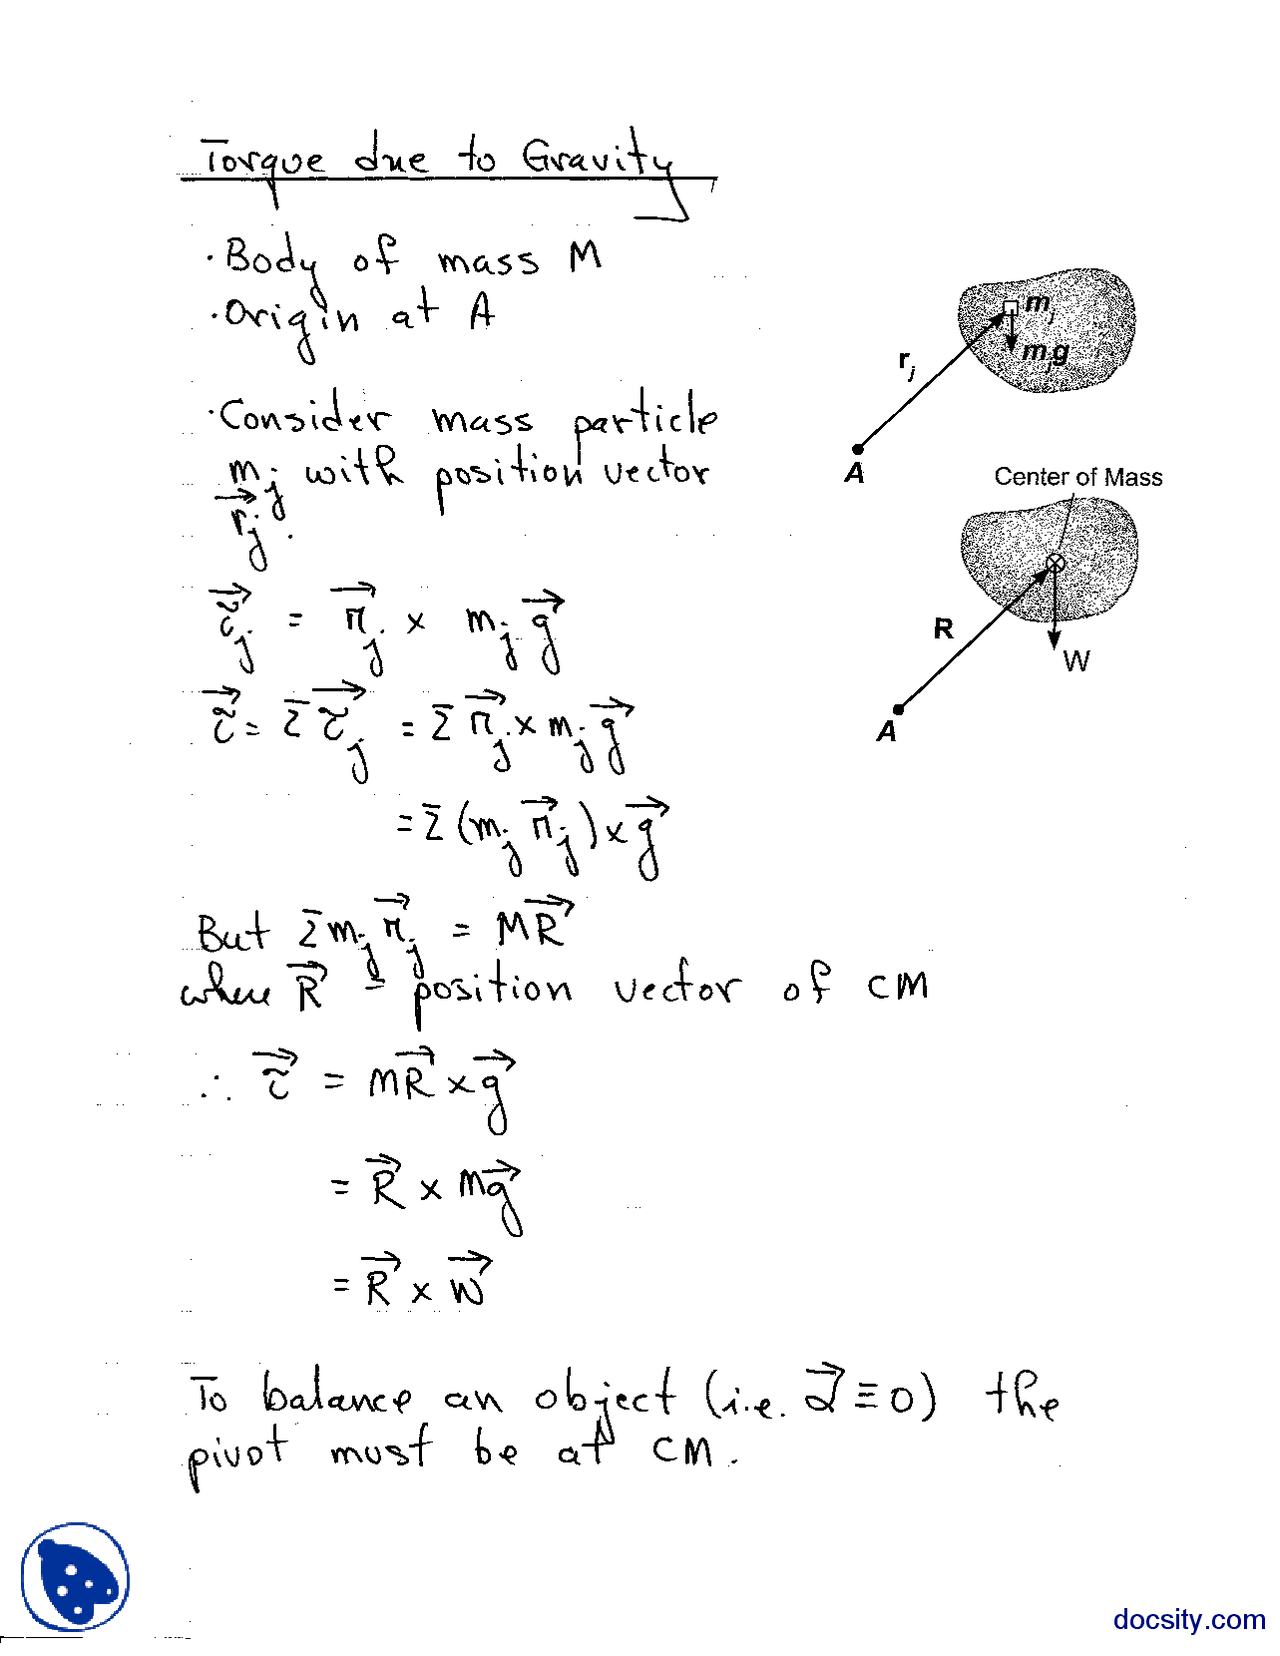 Torque due to Gravity
· Body of mass M
· Origin at A
· Consider mass particle
m_j with position vector
r⃗_j.
τ⃗_j = r⃗_j × m_j g⃗
τ⃗ = Σ τ⃗_j = Σ r⃗_j × m_j g⃗
= Σ (m_j r⃗_j) × g⃗
But Σ m_j r⃗_j = M R⃗
where R⃗ = position vector of CM
∴ τ⃗ = M R⃗ × g⃗
= R⃗ × M g⃗
= R⃗ × W⃗
To balance an object (i.e. α⃗ ≡ 0) the
pivot must be at CM.
m_j
m_j g
r_j
A
Center of Mass
R
W
A
docsity.com